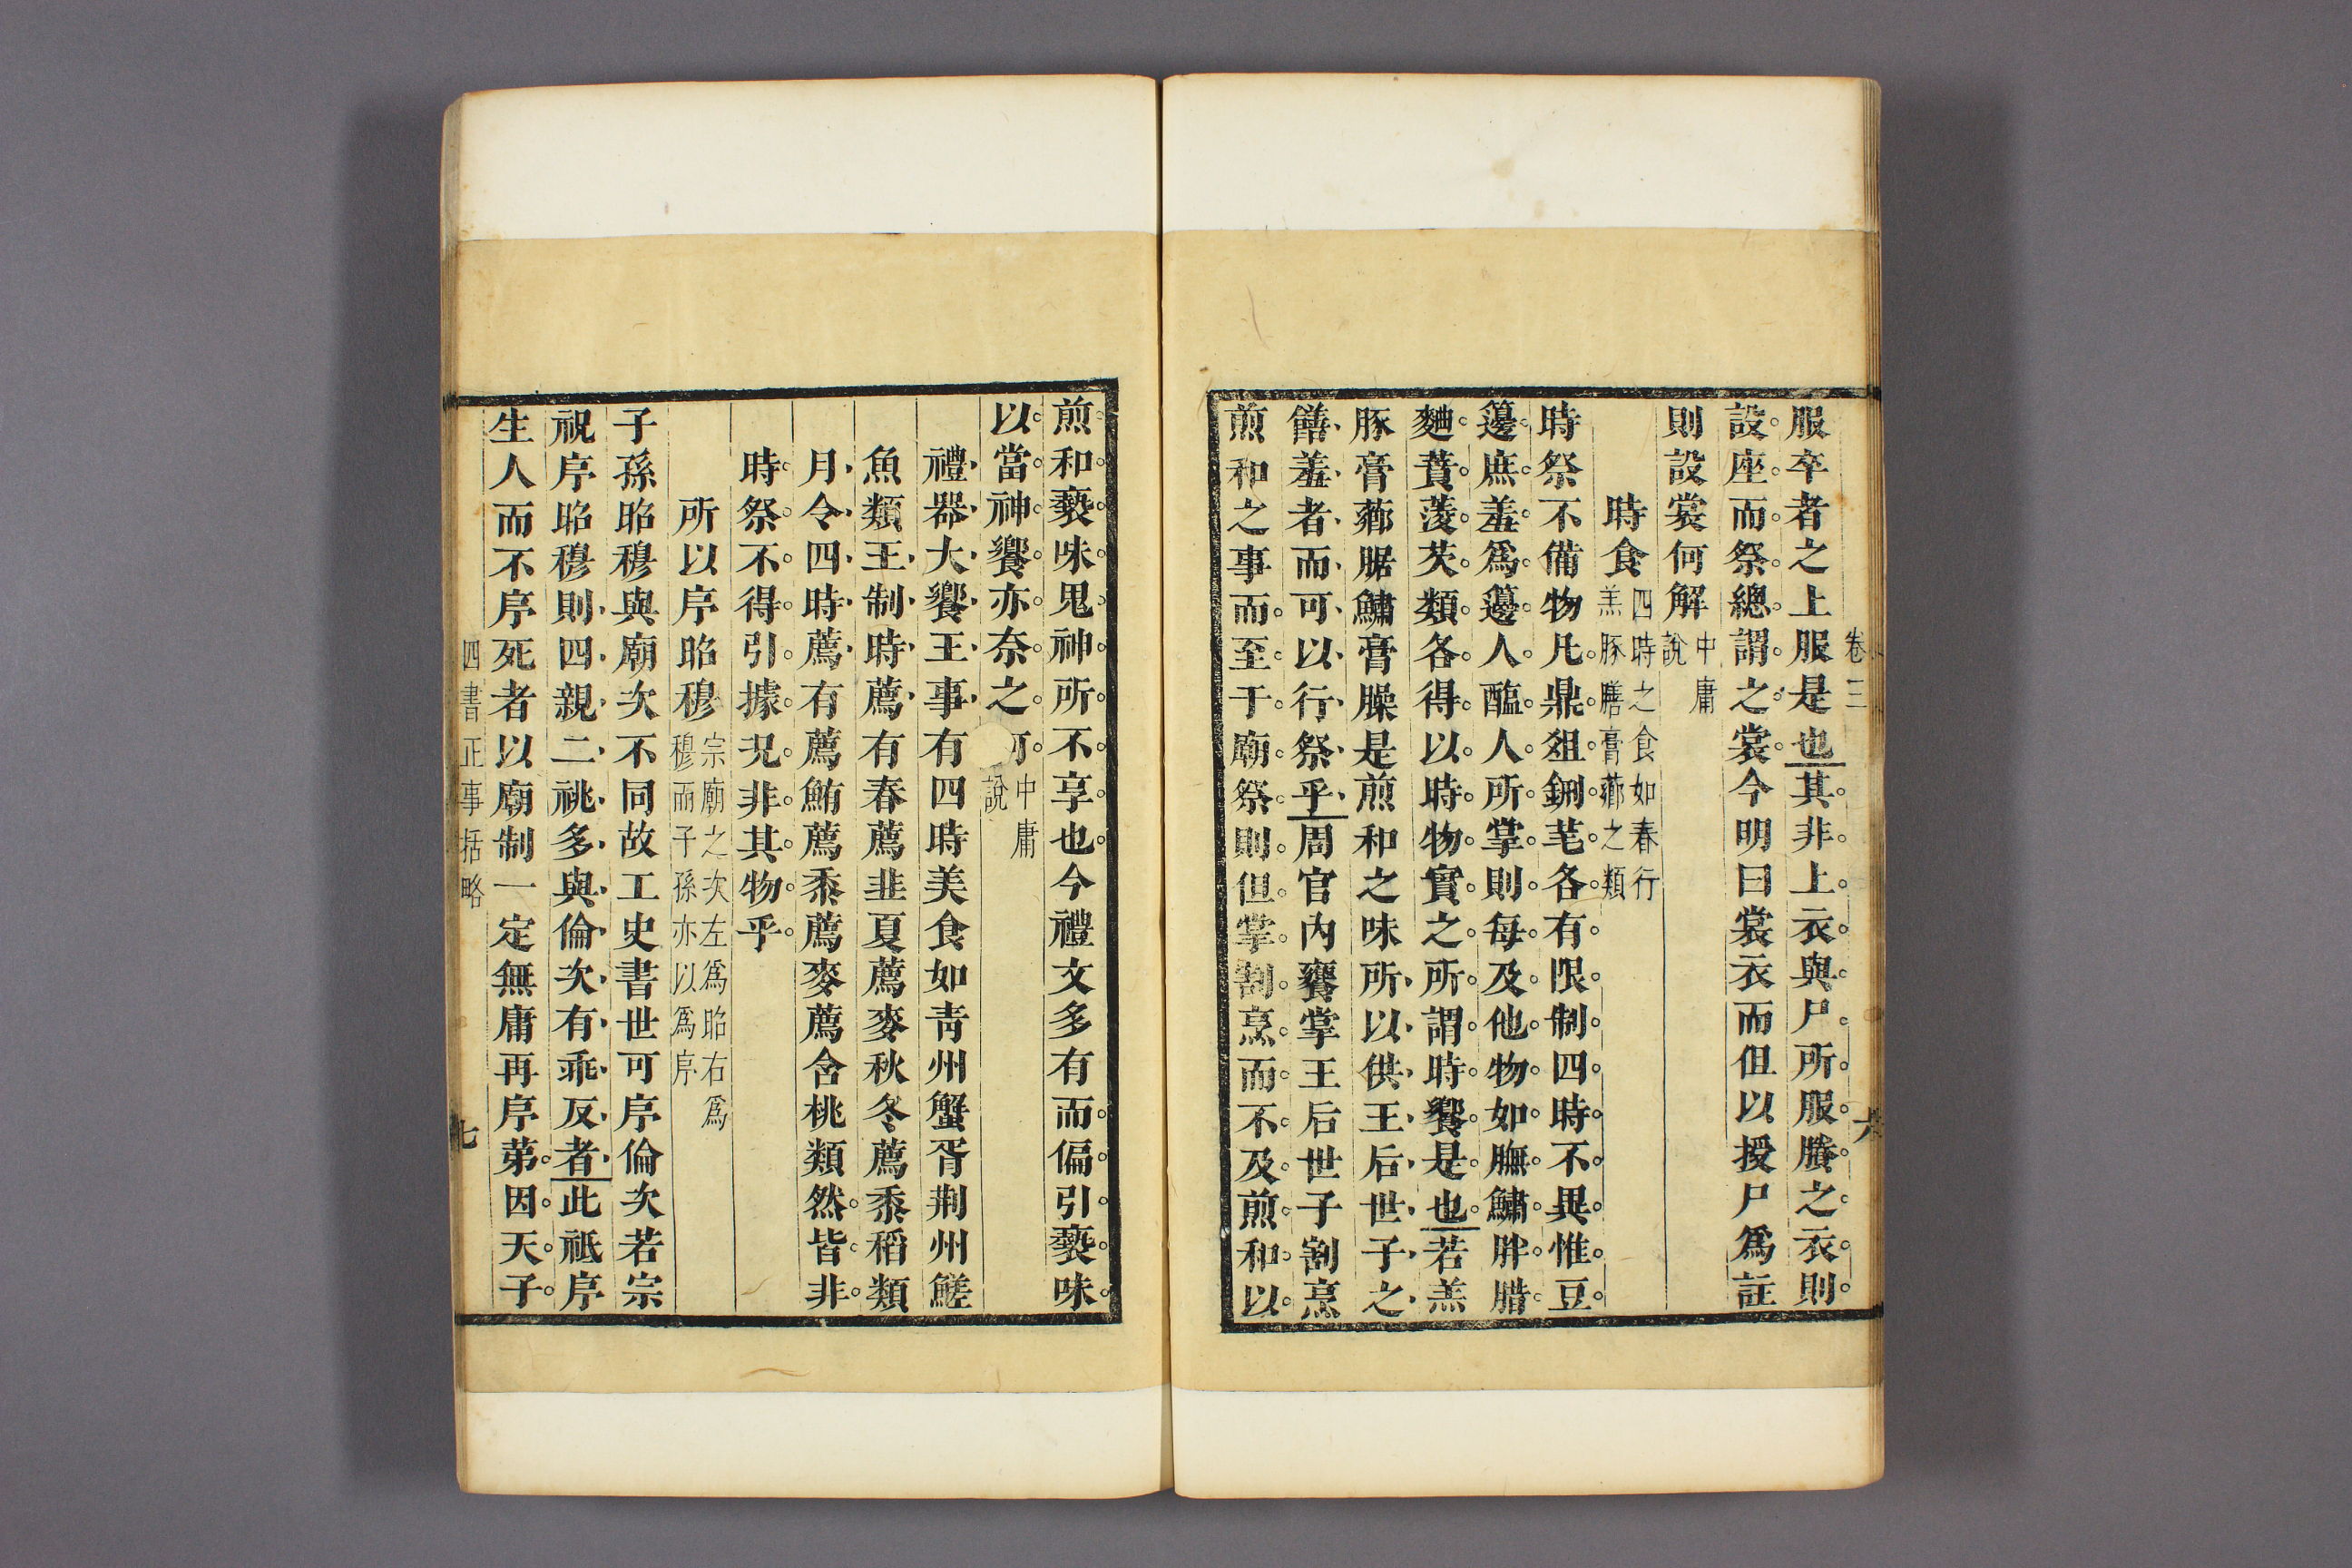 卷三
六
服卒者之上服是也其非上衣與尸所服賸之衣則
設座而祭總謂之裳今明曰裳衣而但以授尸爲註
則設裳何解中庸
說
時食四時之食如春行
羔豚膳膏薌之類
時祭不備物凡鼎俎鉶芼各有限制四時不異惟豆
籩庶羞爲籩人醢人所掌則每及他物如膴鱐胖腊
麷蕡蔆芡類各得以時物實之所謂時饗是也若羔
豚膏薌腒鱐膏臊是煎和之味所以供王后世子之
饍羞者而可以行祭乎周官內饔掌王后世子割烹
煎和之事而至于廟祭則但掌割烹而不及煎和以
煎和褻味鬼神所不享也今禮文多有而偏引褻味
以當神饗亦奈之 中庸
說
禮器大饗王事有四時美食如靑州蟹胥荆州鱃
魚類王制時薦有春薦韭夏薦麥秋冬薦黍稻類
月令四時薦有薦鮪薦黍薦麥薦含桃類然皆非
時祭不得引據況非其物乎
所以序昭穆宗廟之次左爲昭右爲
穆而子孫亦以爲序
子孫昭穆與廟次不同故工史書世可序倫次若宗
祝序昭穆則四親二祧多與倫次有乖反者此祗序
生人而不序死者以廟制一定無庸再序第因天子
四書正事括略
七